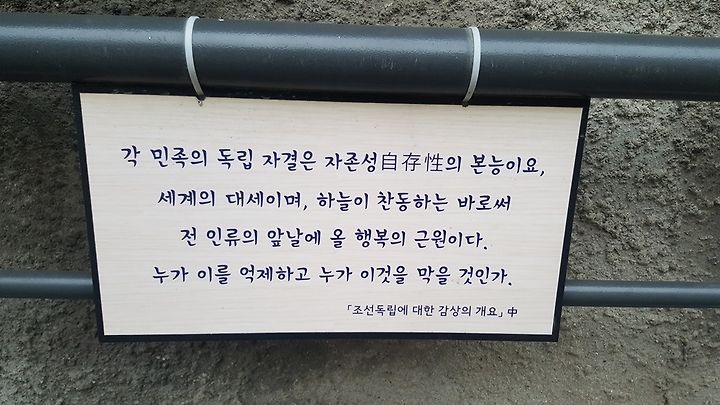 각 민족의 독립 자결은 자존성自存性의 본능이요,
세계의 대세이며, 하늘이 찬동하는 바로써
전 인류의 앞날에 올 행복의 근원이다.
누가 이를 억제하고 누가 이것을 막을 것인가.
「조선독립에 대한 감상의 개요」 中